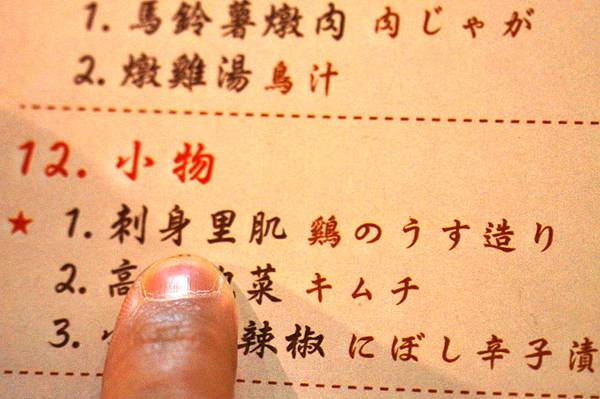 1. 馬鈴薯燉肉 肉じゃが
2. 燉雞湯 鳥汁
12. 小物
★ 1. 刺身里肌 鶏のうす造り
2. 高 菜 キムチ
3. 辣椒 にぼし辛子漬